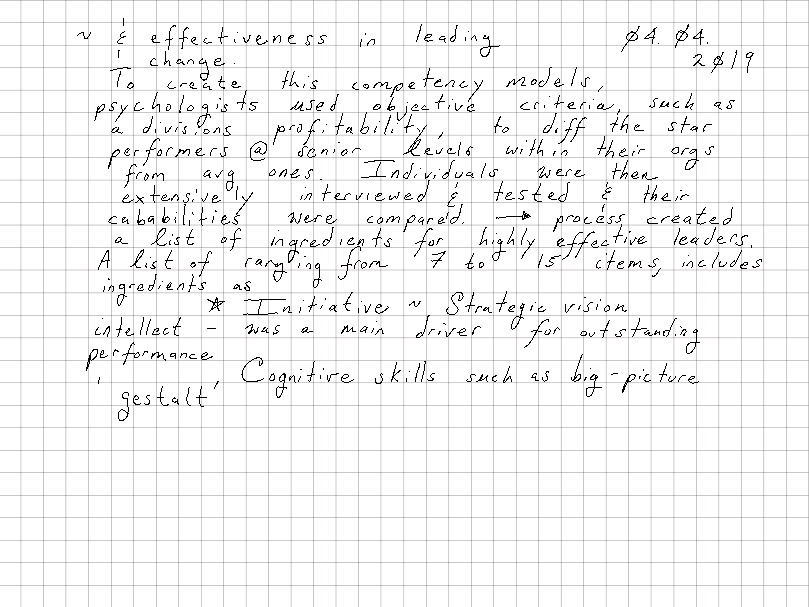 ~ & effectiveness in leading ø4. ø4.
! change. 2ø19
To create this competency models,
psychologists used objective criteria, such as
a divisions profitability, to diff the star
performers @ senior levels within their orgs
from avg ones. Individuals were then
extensively interviewed & tested & their
cababilities were compared. → process created
a list of ingredients for highly effective leaders.
A list of rangling from 7 to 15 items, includes
ingredients as
☆ Initiative ~ Strategic vision
intellect – was a main driver for outstanding
performance
, Cognitive skills such as big-picture
'gestalt'